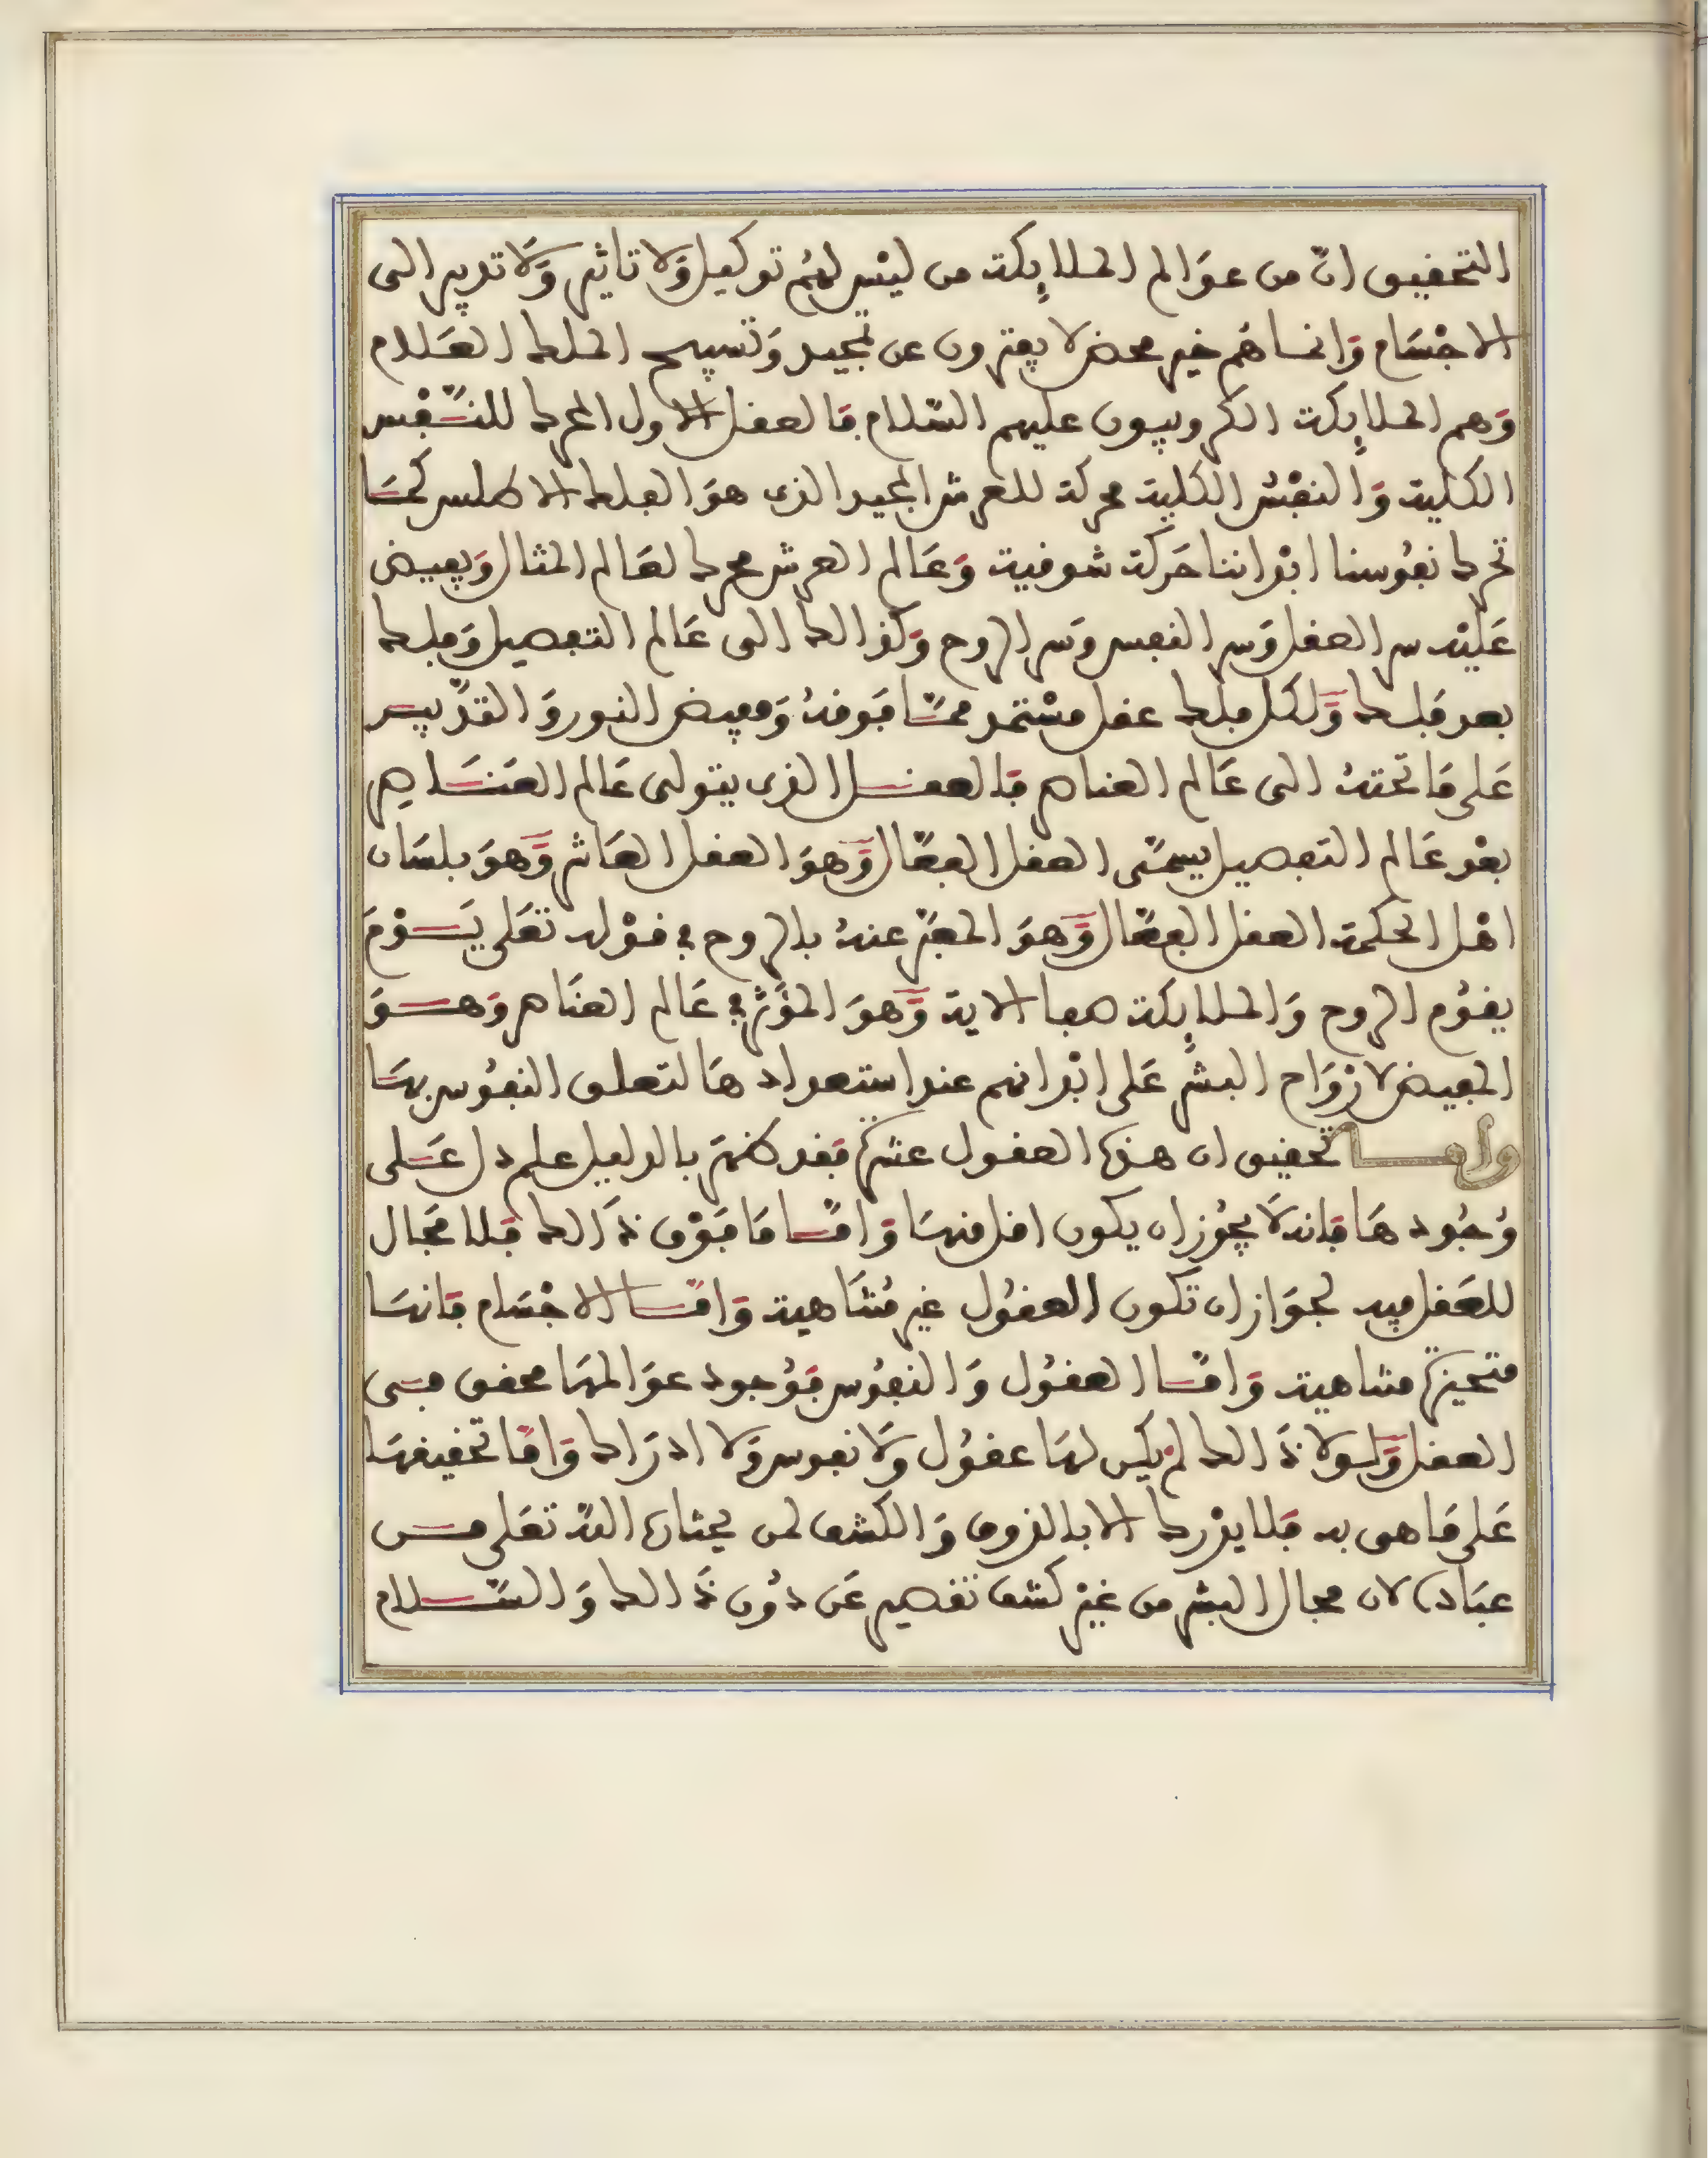 التحقيق ان من عوالم الملايكة من ليس لهم توكيل ولا تاثير ولا تدبير الى
الاجسام وانما هم خير محض لا يفترون عن تمجيد وتسبيح الملك العلام
وهم الملايكة الكروبيون عليهم السلام فالعقل الاول المحرك للنفس
الكلية والنفس الكلية محركة للعرش المجيد الذى هو الفلك الاطلس كما
تحرك نفوسنا ابداننا حركة شوقية وعالم العرش محرك لعالم المثال ويفيض
عليه سر العقل وسر النفس وسر الروح وكذالك الى عالم التفصيل وفلك
بعد فلك ولكل فلك عقل مستمد مما فوقه ومفيض النور والتدبير
على ما تحته الى عالم العناصر فالعقل الذى يتولى عالم العناصر
بعد عالم التفصيل يسمى العقل الفعال وهو العقل العاشر وهو بلسان
اهل الحكمة العقل الفعال وهو المعبر عنه بالروح في قوله تعلى يوم
يقوم الروح والملايكة صفا الاية وهو المؤثر في عالم العناصر وهو
المفيض لارواح البشر على ابدانهم عند استعدادها لتعلق النفوس بها
واما تحقيق ان هذه العقول عشرة فقد ظهر بالدليل علم دل على
وجودها فانه لا يجوز ان يكون اقل منها واما ما فوق ذالك فلا مجال
للعقل فيه لجواز ان تكون العقول غير متناهية واما الاجسام فانها
متحيزة متناهية واما العقول والنفوس فوجود عوالمها محقق في
العقل ولولا ذالك لم يكن لها عقول ولا نفوس ولا ادراك واما تحقيقها
على ما هى به فلا يدرك الا بالذوق والكشف لمن يختاره الله تعلى من
عباده لان مجال البشر من غير كشف تقصير عن دون ذالك والسلام